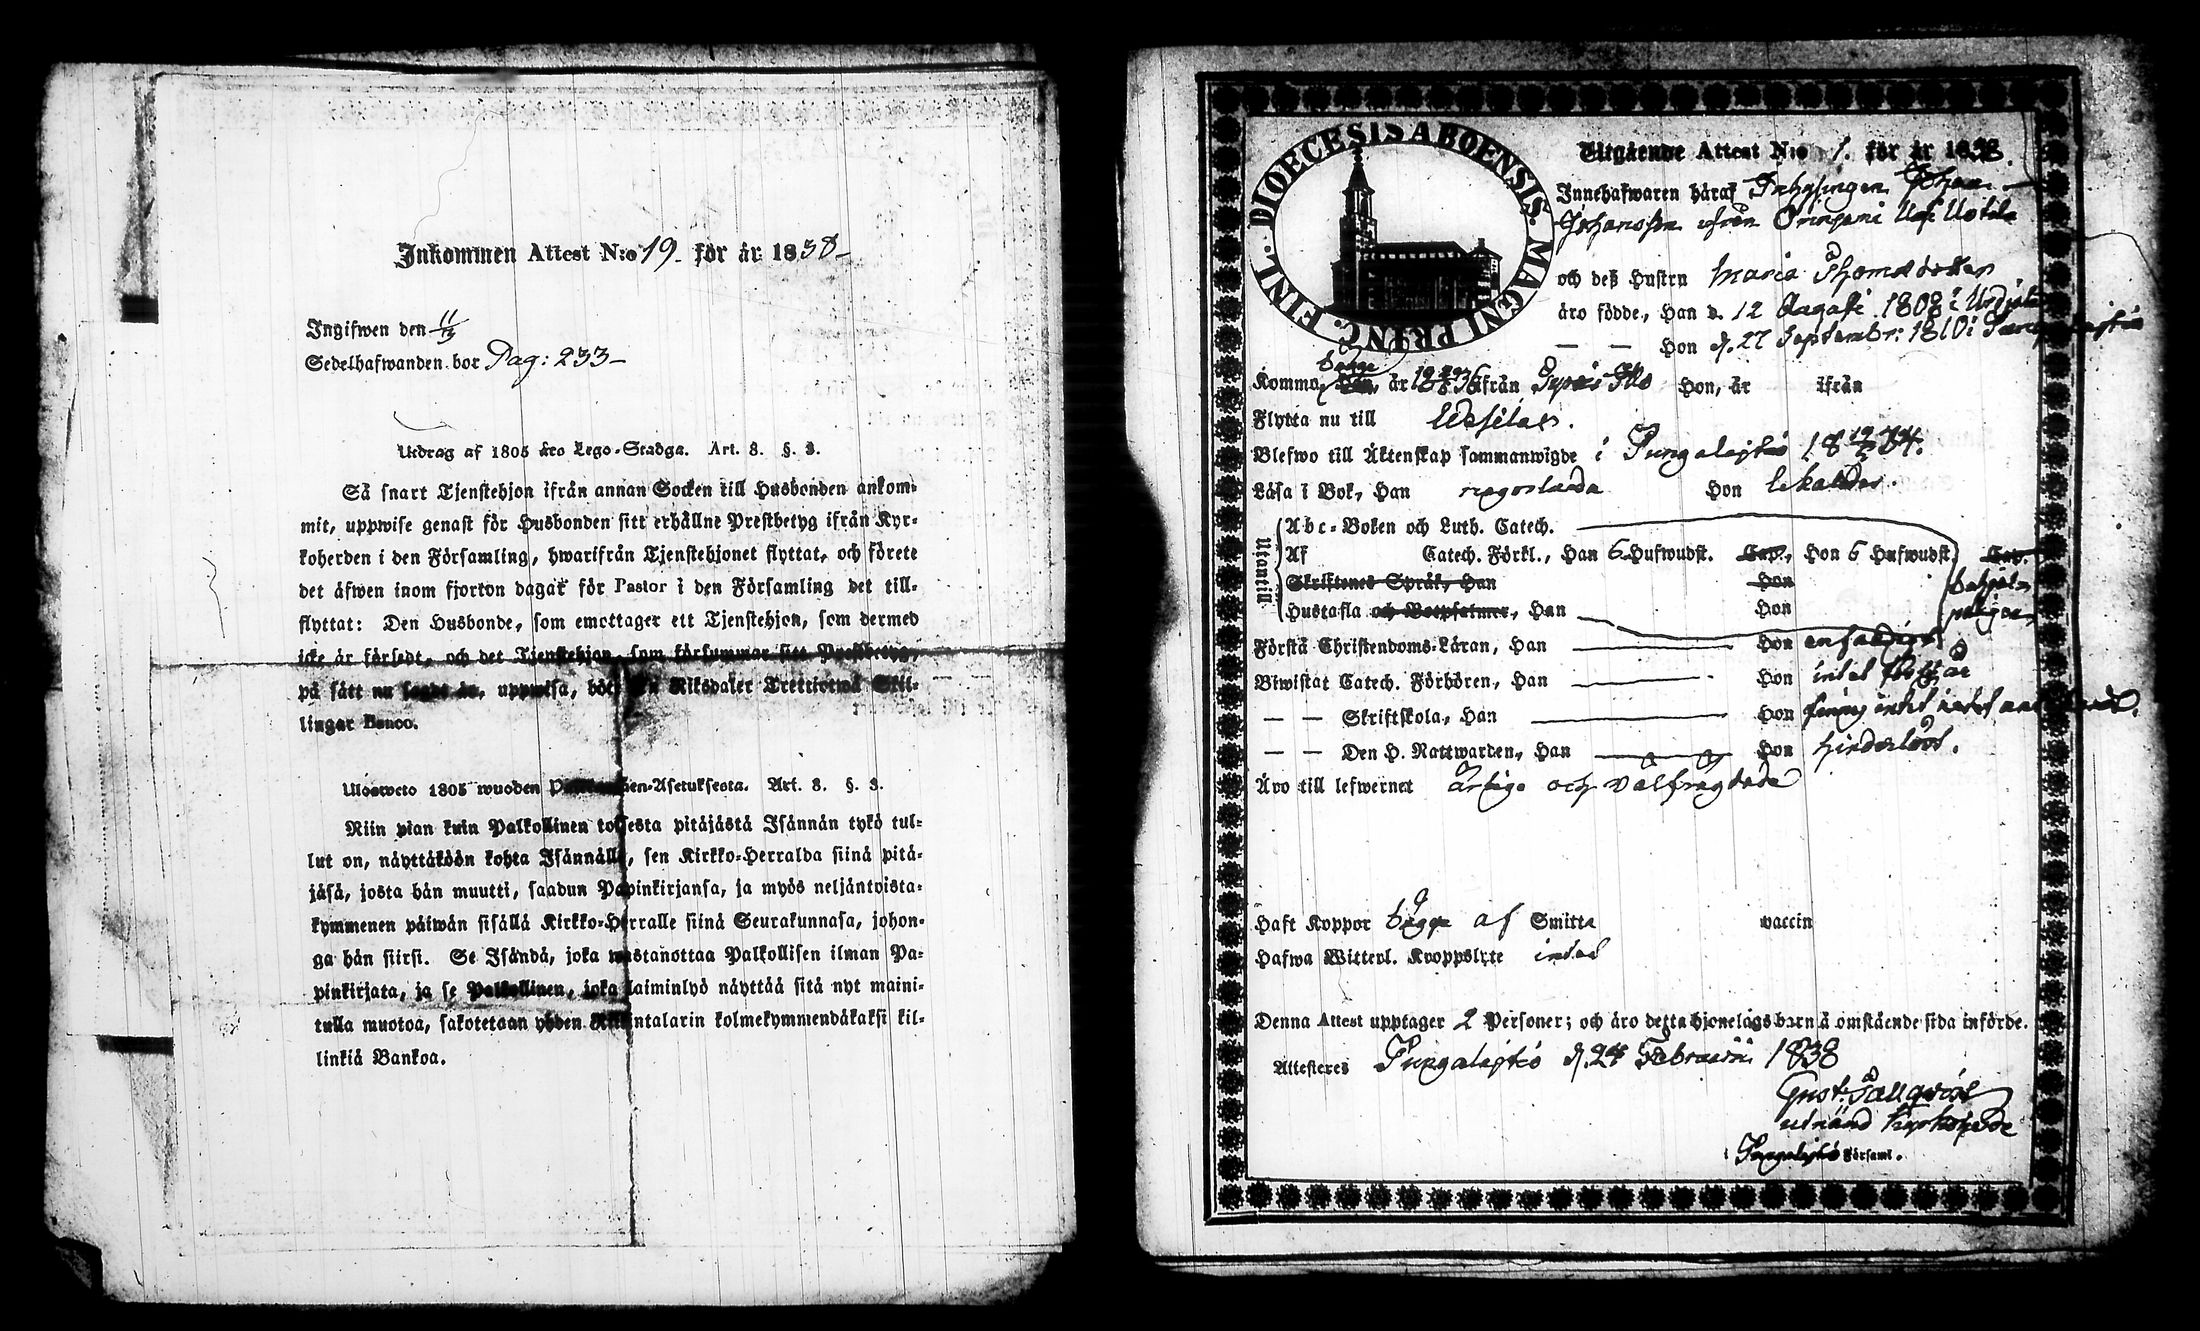 Inkommen Attest N:o 19. för år 1838
Ingifwen den 11/12
Sedelhafwanden bor Pag: 233
Utdrag af 1805 års Lego-Stadga. Art. 8. §. 3.
Så snart Tjenstehjon ifrån annan Socken till Husbonden ankom-
mit, uppwise genast för Husbonden sitt erhållne Prestbetyg ifrån Kyr-
koherden i den Församling, hwarifrån Tjenstehjonet flyttat, och förete
det äfwen inom fjorton dagar för Pastor i den Församling det till-
flyttat: Den Husbonde, som emottager ett Tjenstehjon, som dermed
icke är försedt, och det Tjenstehjon, som försummar sitt Prestbetyg,
på sätt nu sagdt är, uppwisa, böte En Riksdaler Trettiotwå Skil-
lingar Banco.
Ulosweto 1805 wuoden Palkollisten-Asetuksesta. Art. 8. §. 3.
Niin pian kuin Palkollinen toisesta pitäjästä Isännän tykö tul-
lut on, näyttäköön kohta Isännälle, sen Kirkko-Herralda siinä pitä-
jäsä, josta hän muutti, saadun Papinkirjansa, ja myös neljäntoista-
kymmenen päiwän sisällä Kirkko-Herralle siinä Seurakunnasa, johon-
ga hän siirsi. Se Isändä, joka wastanottaa Palkollisen ilman Pa-
pinkirjata, ja se Palkollinen, joka laiminlyö näyttää sitä nyt maini-
tulla muotoa, sakotetaan yhden Riksintalarin kolmekymmendäkaksi kil-
linkiä Bankoa.
FINL. DIOECESIS ABOENSIS. MAGNI PRINC.
Utgående Attest N:o 1. för år 1838.
Innehafwaren häraf Inhysingen Johan
Johansson ifrån
och deß Hustru Maria Thomsdotter
äro födde, Han d. 12 1808 i Urdjala
— — Hon d. 27 Septembr: 1810 i
Kommo, bägge Han, år 1836 ifrån Hon, år ifrån
Flytta nu till
Blefwo till Äktenskap sammanwigde i Pungalaitio 1834.
Läsa i Bok, Han någorlunda Hon likaledes.
Utantill
Abc-Boken och Luth. Catech.
Af Catech. Förkl., Han 6 Hufwudst. Cap., Hon 6 Hufwudst. Cap.
Skriftenes Språk, Han Hon
Hustafla och Botpsalmer, Han Hon
Förstå Christendoms-Läran, Han Hon enfaldigt
Biwistat Catech. Förhören, Han Hon
— — Skriftskola, Han Hon
— — Den H. Nattwarden, Han Hon hinderlöst.
Äro till lefwernet ärlige och välfrägdade
Haft Koppor bägge af Smitta vaccin
Hafwa Witterl. Kroppslyte intet
Denna Attest upptager 2 Personer; och äro detta hjonelags barn å omstående sida införde.
Attesteres Pungalaitio d. 24 Februarii 1838
Gust. Pallqvist
utnämd Kyrkoherde
i Pungalaitio Församl.